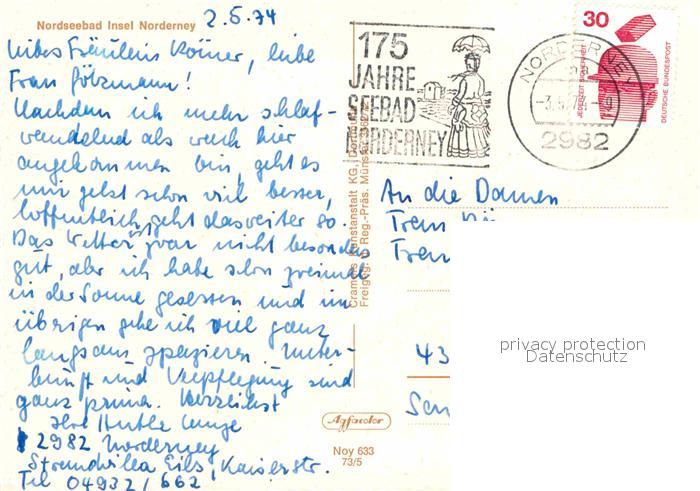 Nordseebad Insel Norderney
2.5.74
Liebes Fräulein Körner, liebe
Frau Götzmann!
Nachdem ich mehr schlaf-
wandelnd als wach hier
angekommen bin, geht es
mir jetzt schon viel besser,
hoffentlich geht das weiter so.
Das Wetter war nicht besonders
gut, aber ich habe schon zweimal
in der Sonne gesessen und im
übrigen gehe ich viel ganz
langsam spazieren. Unter-
kunft und Verpflegung sind
ganz prima. Herzlichst
Ihre
2982 Norderney
Strandvilla Eils, Kaiserstr.
Tel 04932/662
175
JAHRE
SEEBAD
NORDERNEY
NORDERNEY
2982
30
JEDERZEIT SICHERHEIT
DEUTSCHE BUNDESPOST
Cramers Kunstanstalt KG, Dortmund
Freigeg. d. Reg.-Präs. Münster
An die Damen
Frau
Frau
43
privacy protection
Datenschutz
Agfacolor
Noy 633
73/5